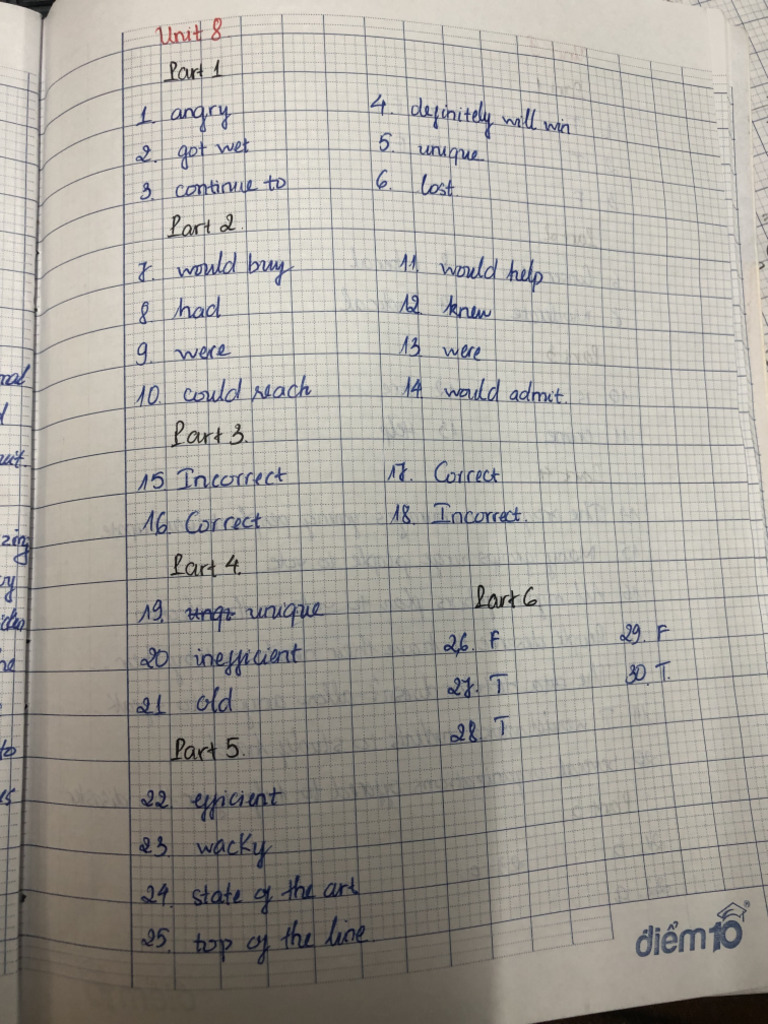 Unit 8
Part 1
1. angry
2. got wet
3. continue to
4. definitely will win
5. unique
6. lost
Part 2.
7. would buy
8 had
9 were
10. could reach
11 would help
12 knew
13 were
14 would admit.
Part 3.
15 Incorrect
16. Correct
17. Correct
18. Incorrect.
Part 4.
19. unique
20 inefficient
21 old
Part 5.
22 efficient
23 wacky
24 state of the art
25. top of the line
Part 6.
26. F
27. T
28. T
29. F
30. T.
nal
uit
zing
ry
he
to
es
điểm 10